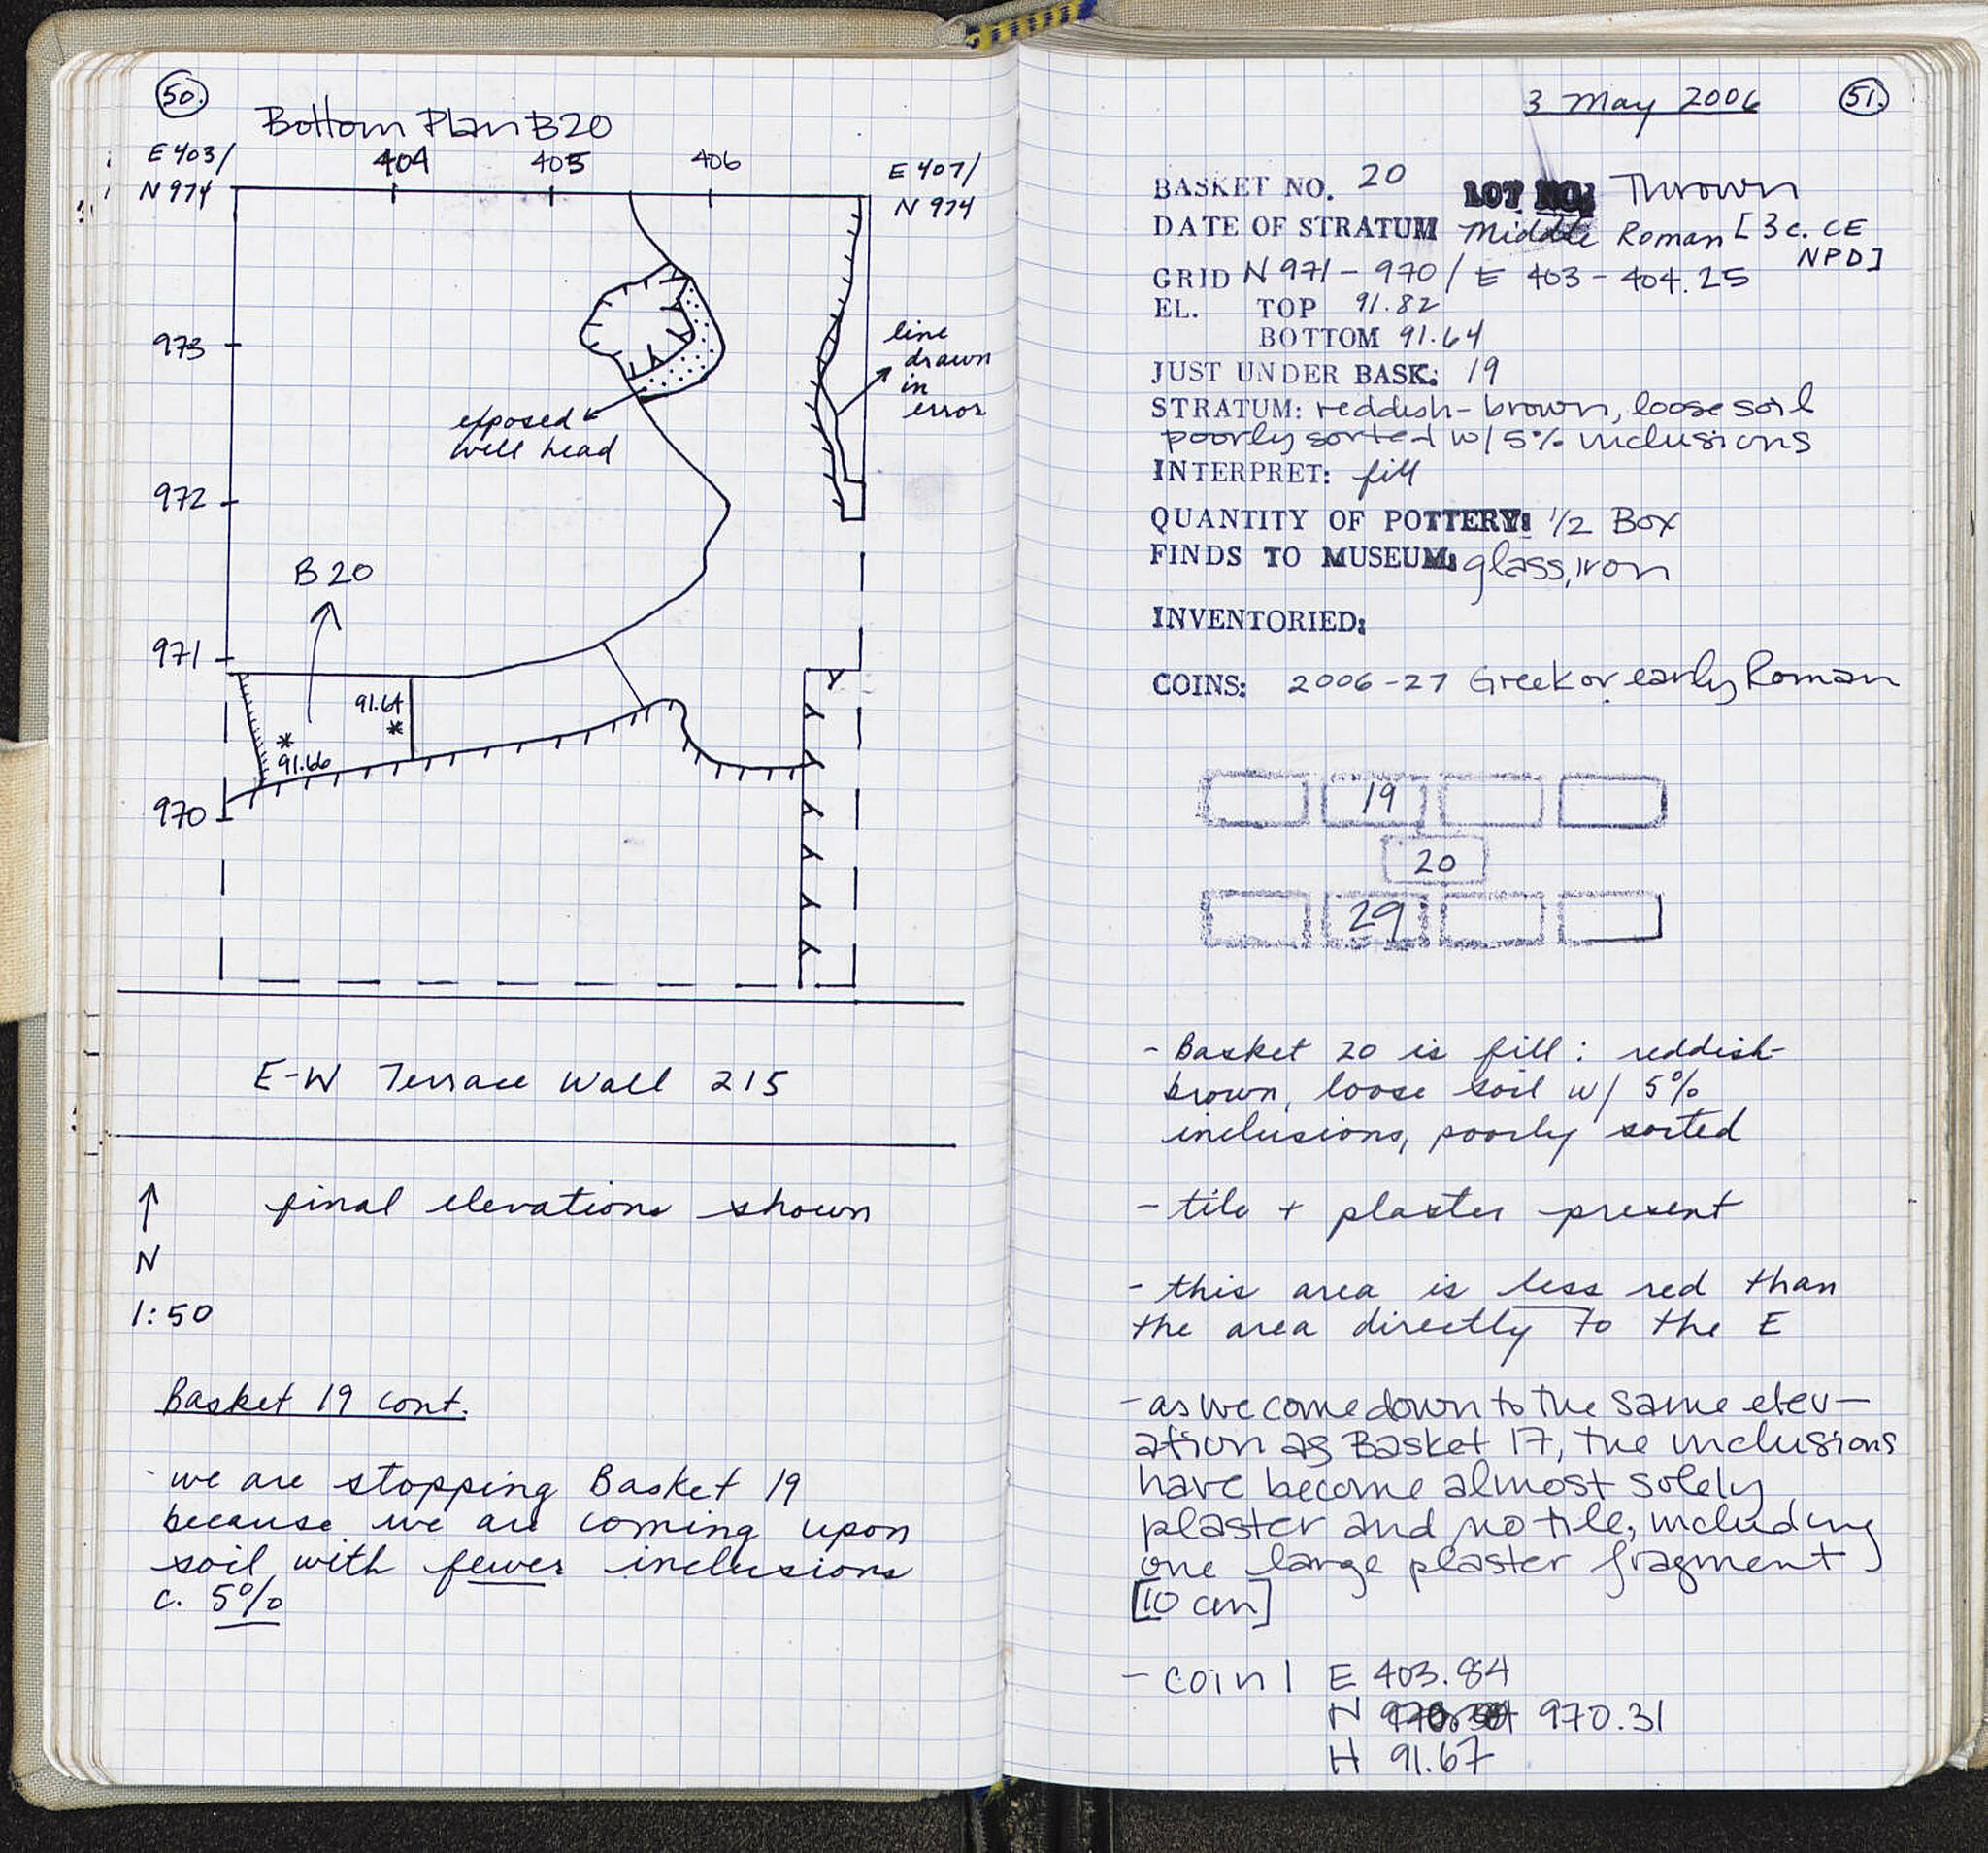 50.
Bottom Plan B20
E 403/
N 974
404
405
406
E 407/
N 974
973
line
drawn
in
error
exposed
well head
972
B 20
971
91.64
*
*
91.66
970
E-W Terrace Wall 215
↑
N
1:50
final elevations shown
Basket 19 cont.
- we are stopping Basket 19
because we are coming upon
soil with fewer inclusions
c. 5%
3 May 2006
51.
BASKET NO. 20 LOT NO: Thrown
DATE OF STRATUM Middle Roman [3 c. CE
NPD]
GRID N 971 - 970 / E 403 - 404.25
EL. TOP 91.82
BOTTOM 91.64
JUST UNDER BASK: 19
STRATUM: reddish-brown, loose soil
poorly sorted w/ 5% inclusions
INTERPRET: fill
QUANTITY OF POTTERY: 1/2 Box
FINDS TO MUSEUM: glass, iron
INVENTORIED:
COINS: 2006-27 Greek or early Roman
19
20
29
- Basket 20 is fill: reddish-
brown, loose soil w/ 5%
inclusions, poorly sorted
- tile + plaster present
- this area is less red than
the area directly to the E
- as we come down to the same elev-
ation as Basket 17, the inclusions
have become almost solely
plaster and no tile, including
one large plaster fragment
[10 cm]
- coin 1 E 403.84
N 970.31
H 91.67